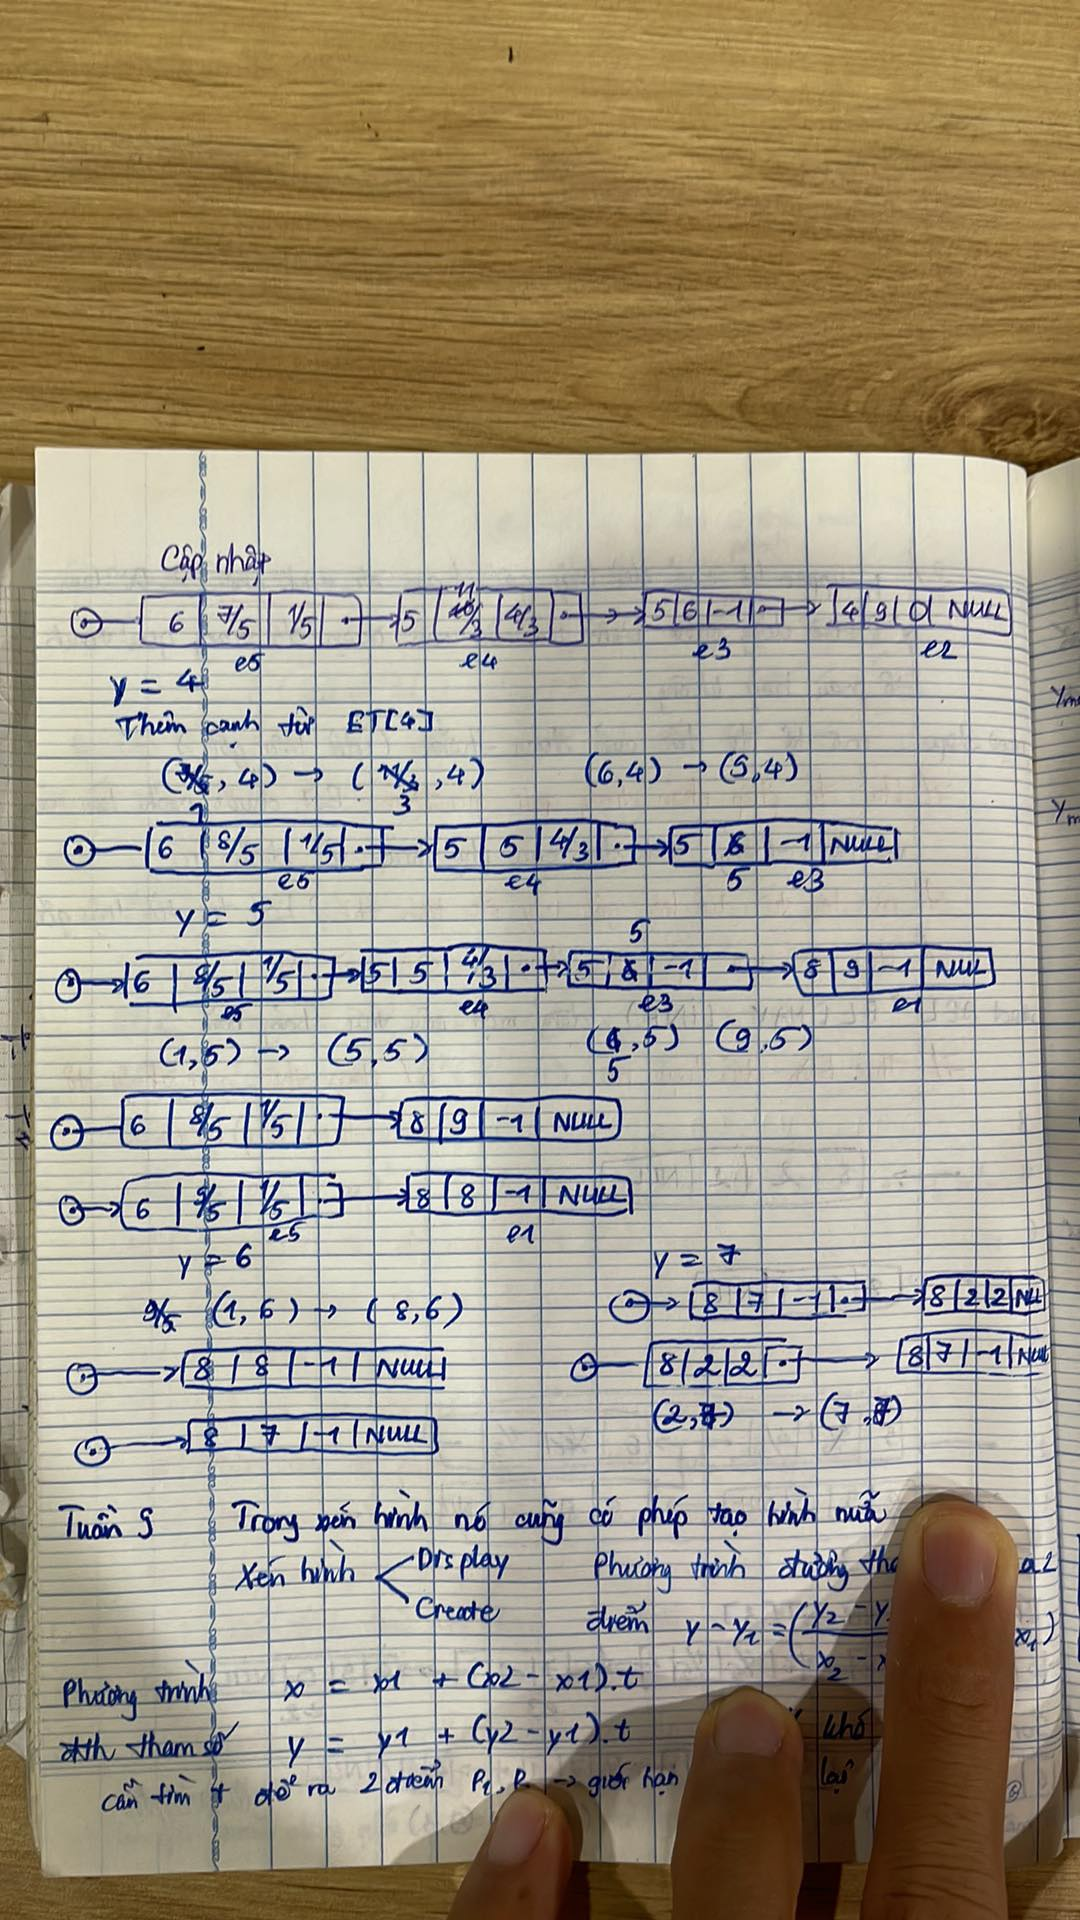 Cập nhập
6 | 7/5 | 1/5 | 5 | 11/3 | 4/3 | 5 | 6 | -1 | 4 | 9 | 0 | NULL
e5 e4 e3 e2
y = 4
Thêm cạnh từ ET[4]
( , 4) → ( /3 , 4) (6,4) → (5,4)
6 | 8/5 | 1/5 | 5 | 5 | 4/3 | 5 | 5 | -1 | NULL
e5 e4 e3
y = 5
6 | 8/5 | 1/5 | 5 | 5 | 4/3 | 5 | 5 | -1 | 8 | 9 | -1 | NULL
e5 e4 e3 e1
(1,5) → (5,5) (5,5) (9,5)
6 | 8/5 | 1/5 | 8 | 9 | -1 | NULL
6 | 9/5 | 1/5 | 8 | 8 | -1 | NULL
e5 e1
y = 6
9/5 (1,6) → (8,6)
8 | 8 | -1 | NULL
8 | 7 | -1 | NULL
y = 7
8 | 7 | -1 | 8 | 2 | 2 | NULL
8 | 2 | 2 | 8 | 7 | -1 | NULL
(2,7) → (7,7)
Tuần 5 Trong xén hình nó cũng có phép tạo hình nữa
Xén hình Display
Create
Phương trình đường a 2
điểm y - y1 = (y2 - y x2 - x x1)
Phương trình x = x1 + (x2 - x1).t
đth tham số y = y1 + (y2 - y1).t khó
cần tìm t để ra 2 điểm P1, P → giới hạn lại